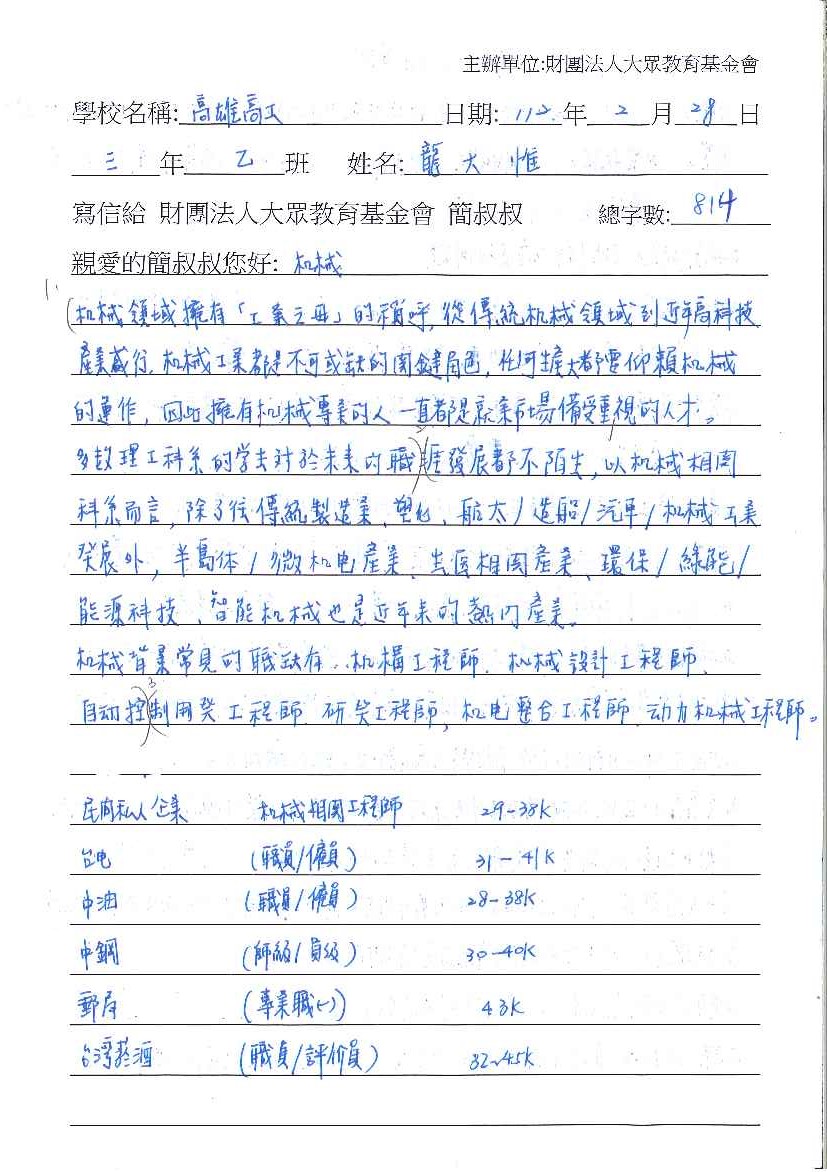 主辦單位:財團法人大眾教育基金會
學校名稱: 高雄高工 日期: 112 年 2 月 28 日
三 年 乙 班 姓名: 龍大惟
寫信給 財團法人大眾教育基金會 簡叔叔 總字數: 814
親愛的簡叔叔您好: 机械
机械領域擁有「工業之母」的稱呼,從傳統机械領域到近年高科技
產業盛行,机械工業都是不可或缺的関鍵角色,任何生產大都要仰賴机械
的運作,因此擁有机械專業的人一直都是就業市場備受重視的人才。
多数理工科系的学生对於未来的職涯發展都不陌生,以机械相関
科系而言,除了往傳統製造業、塑化、航太/造船/汽車/机械工業
癸展外,半島体/微机电產業、生医相関產業、環保/綠能/
能源科技、智能机械也是近年来的熱门產業。
机械背景常見的職缺有:机構工程師、机械設計工程師、
自动控制用癸工程師、研癸工程師,机电整合工程師、动力机械工程師。
民间私人企業 机械相関工程師 29-38K
台电 (職員/僱員) 31-41K
中油 (職員/僱員) 28-38K
中鋼 (師級/員級) 30-40K
郵局 (專業職(一)) 43K
台湾菸酒 (職員/評价員) 32~45K